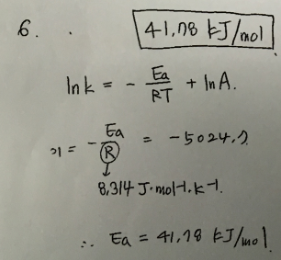 6. .
41.78 kJ/mol
ln k = - Ea/RT + ln A.
기 = - Ea/R = -5024.7.
8.314 J·mol-1·k-1.
∴ Ea = 41.78 kJ/mol.